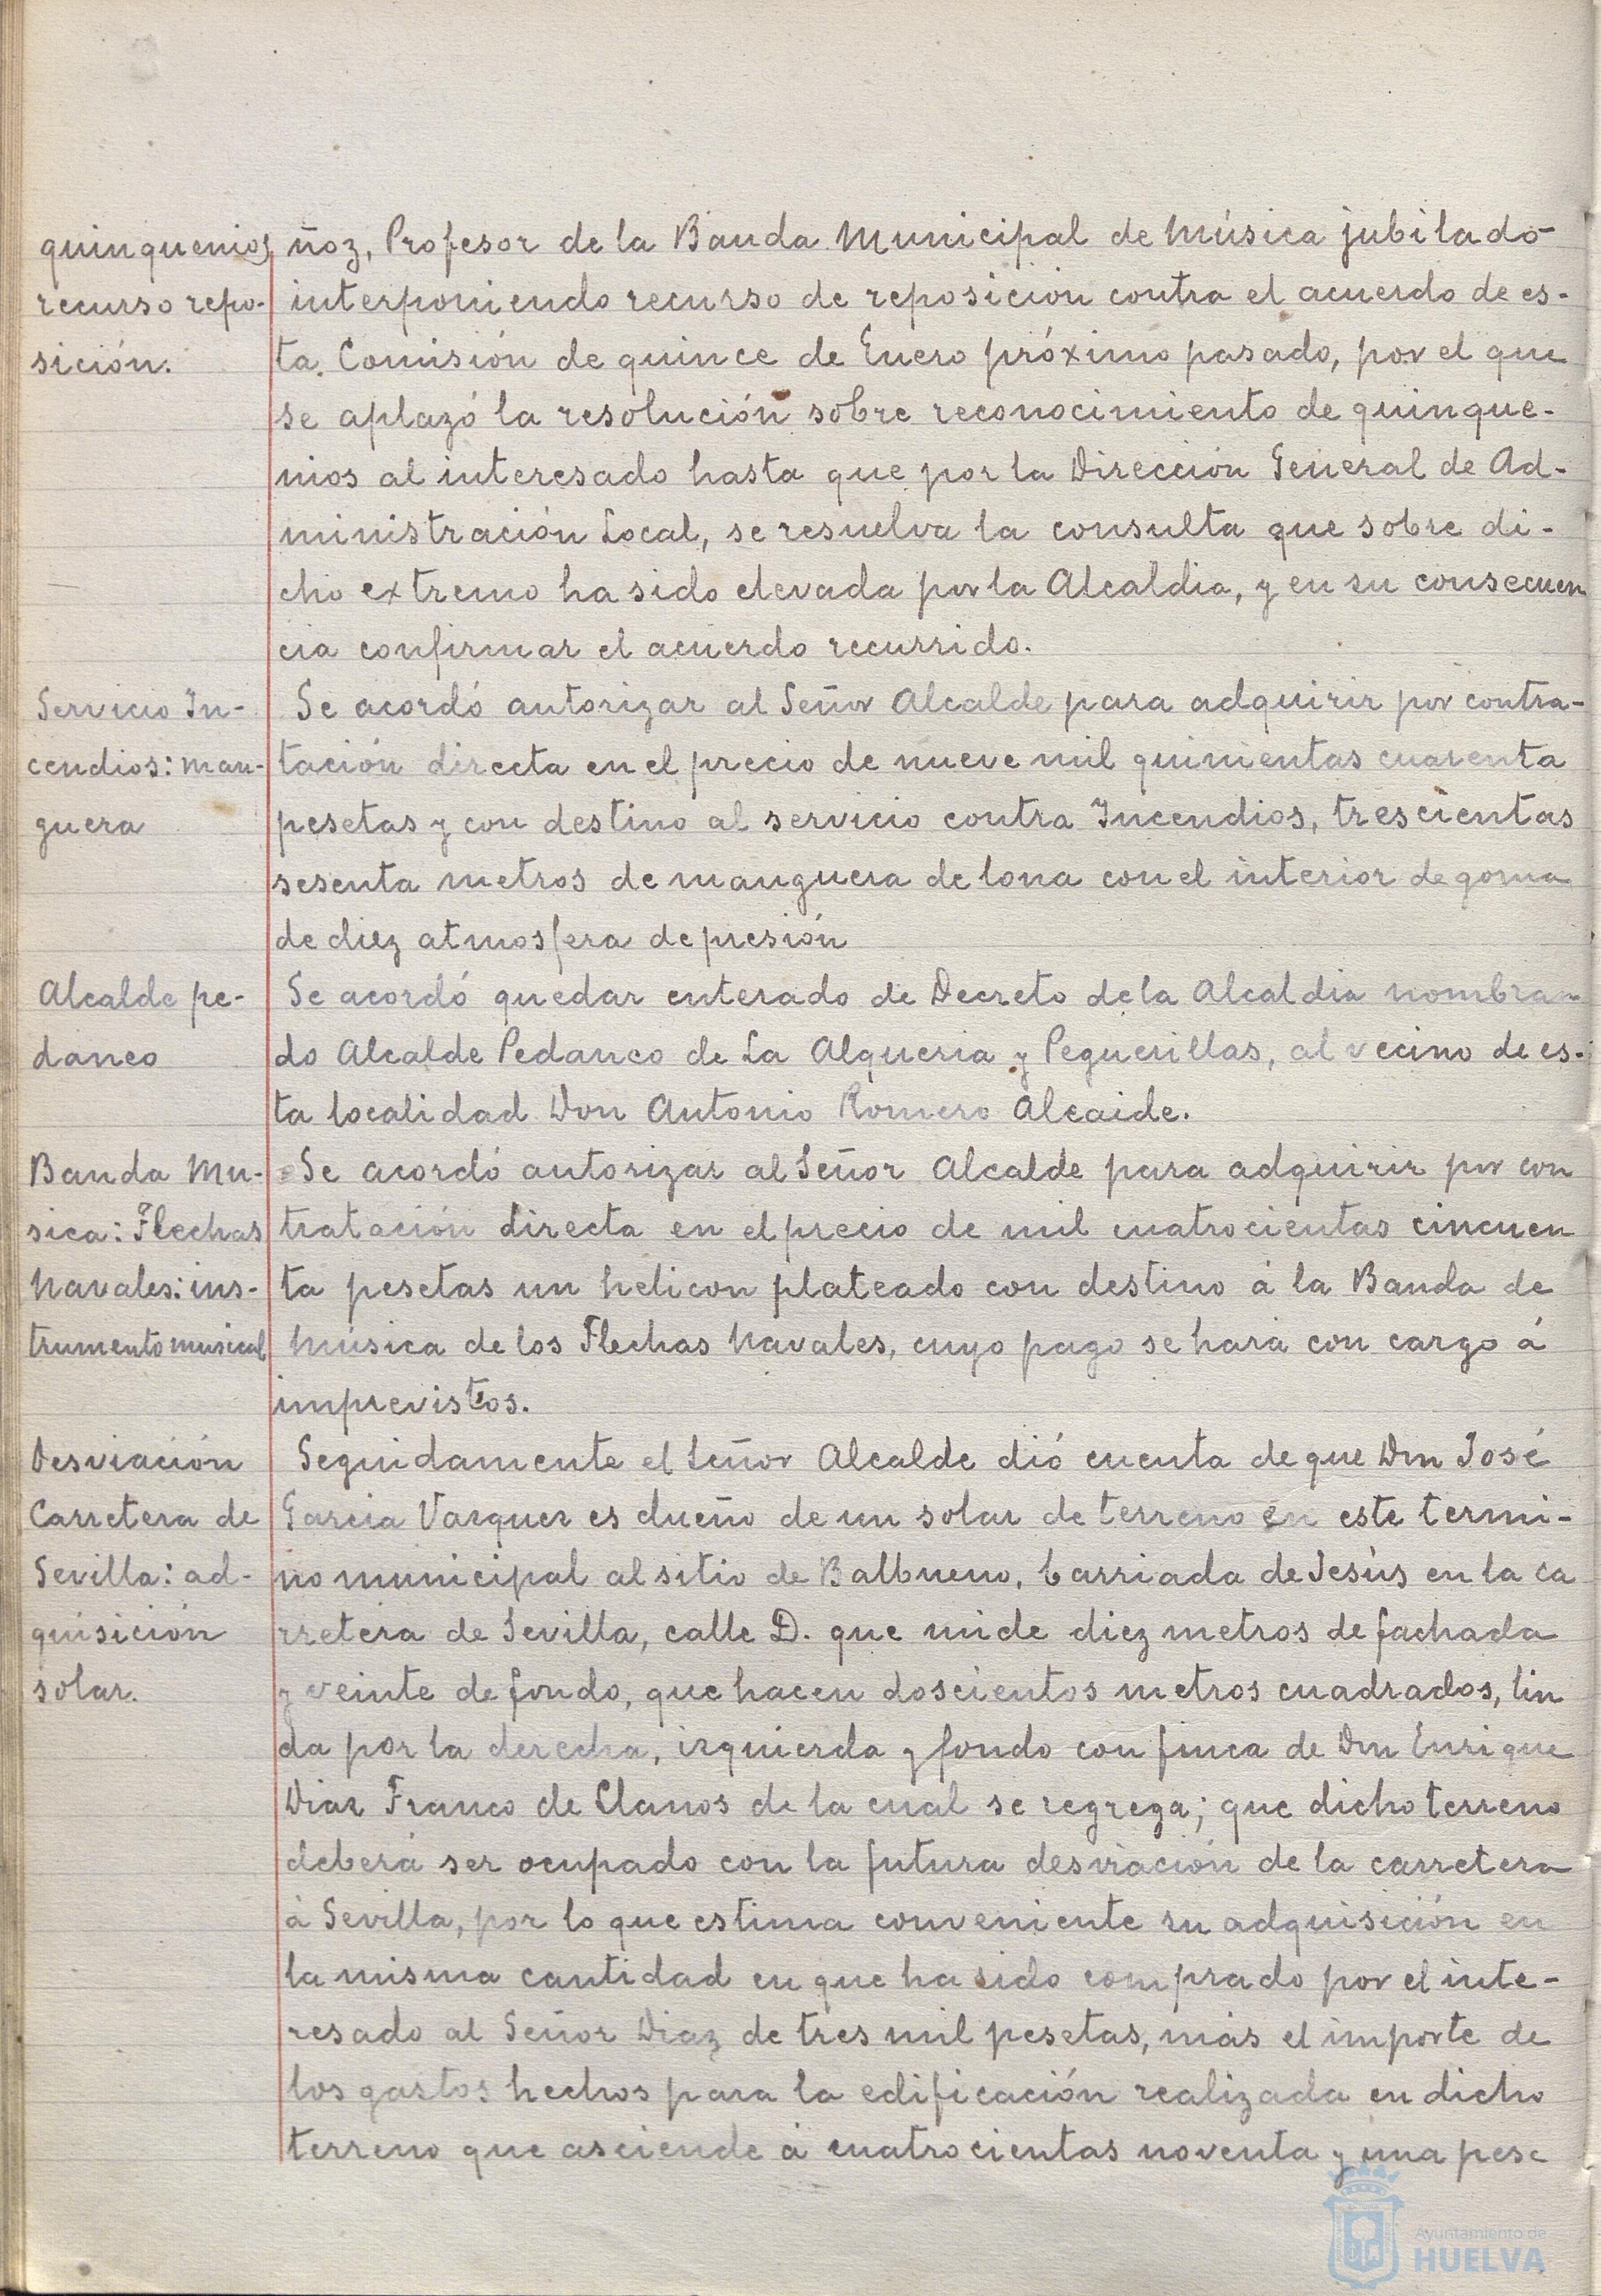 quinquenios
recurso repo-
sición.
ñoz, Profesor de la Banda Municipal de Música jubilado
interponiendo recurso de reposición contra el acuerdo de es-
ta Comisión de quince de Enero próximo pasado, por el que
se aplazó la resolución sobre reconocimiento de quinque-
nios al interesado hasta que por la Dirección General de Ad-
ministración Local, se resuelva la consulta que sobre di-
cho extremo ha sido elevada por la Alcaldia, y en su consecuen
cia confirmar el acuerdo recurrido.
Servicio In-
cendios: man-
guera
Se acordó autorizar al Señor Alcalde para adquirir por contra-
tación directa en el precio de nueve mil quinientas cuarenta
pesetas y con destino al servicio contra Incendios, trescientas
sesenta metros de manguera de lona con el interior de goma
de diez atmosfera de presión
Alcalde pe-
daneo
Se acordó quedar enterado de Decreto de la Alcaldia nombran
do Alcalde Pedaneo de La Alqueria y Peguerillas, al vecino de es-
ta localidad Don Antonio Romero Alcaide.
Banda Mu-
sica: Flechas
Navales: ins-
trumento musical
Se acordó autorizar al Señor Alcalde para adquirir por con
tratación directa en el precio de mil cuatrocientas cincuen
ta pesetas un helicon plateado con destino á la Banda de
Música de los Flechas Navales, cuyo pago se hará con cargo á
imprevistos.
Desviación
Carretera de
Sevilla: ad-
quisición
solar.
Seguidamente el Señor Alcalde dió cuenta de que Don José
Garcia Vazquez es dueño de un solar de terreno en este termi-
no municipal al sitio de Balbueno, barriada de Jesús en la ca
rretera de Sevilla, calle D. que mide diez metros de fachada
y veinte de fondo, que hacen doscientos metros cuadrados, lin
da por la derecha, izquierda y fondo con finca de Don Enrique
Diaz Franco de Llanos de la cual se regrega; que dicho terreno
deberá ser ocupado con la futura desviación de la carretera
á Sevilla, por lo que estima conveniente su adquisición en
la misma cantidad en que ha sido comprado por el inte-
resado al Señor Diaz de tres mil pesetas, más el importe de
los gastos hechos para la edificación realizada en dicho
terreno que asciende á cuatrocientas noventa y una pese
Ayuntamiento de
HUELVA